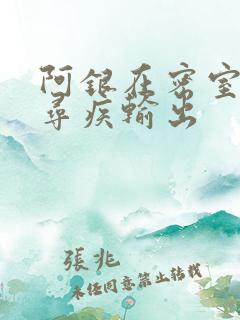 阿银在密室
寻疾輸出
張兆
未经同意禁止转载